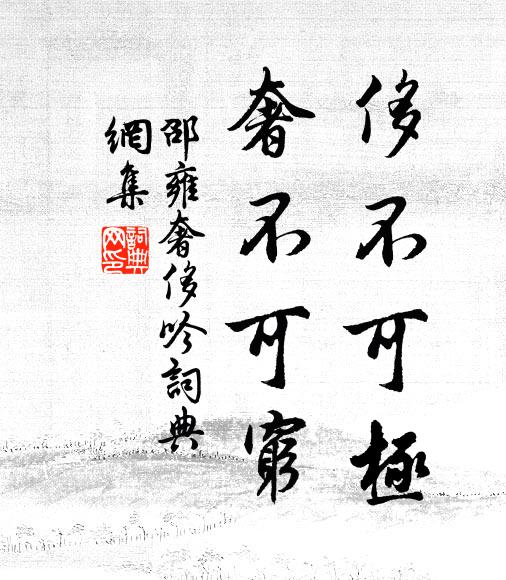 侈不可極
奢不可窮
邵雍奢侈吟詞典
網集
詞典
网印